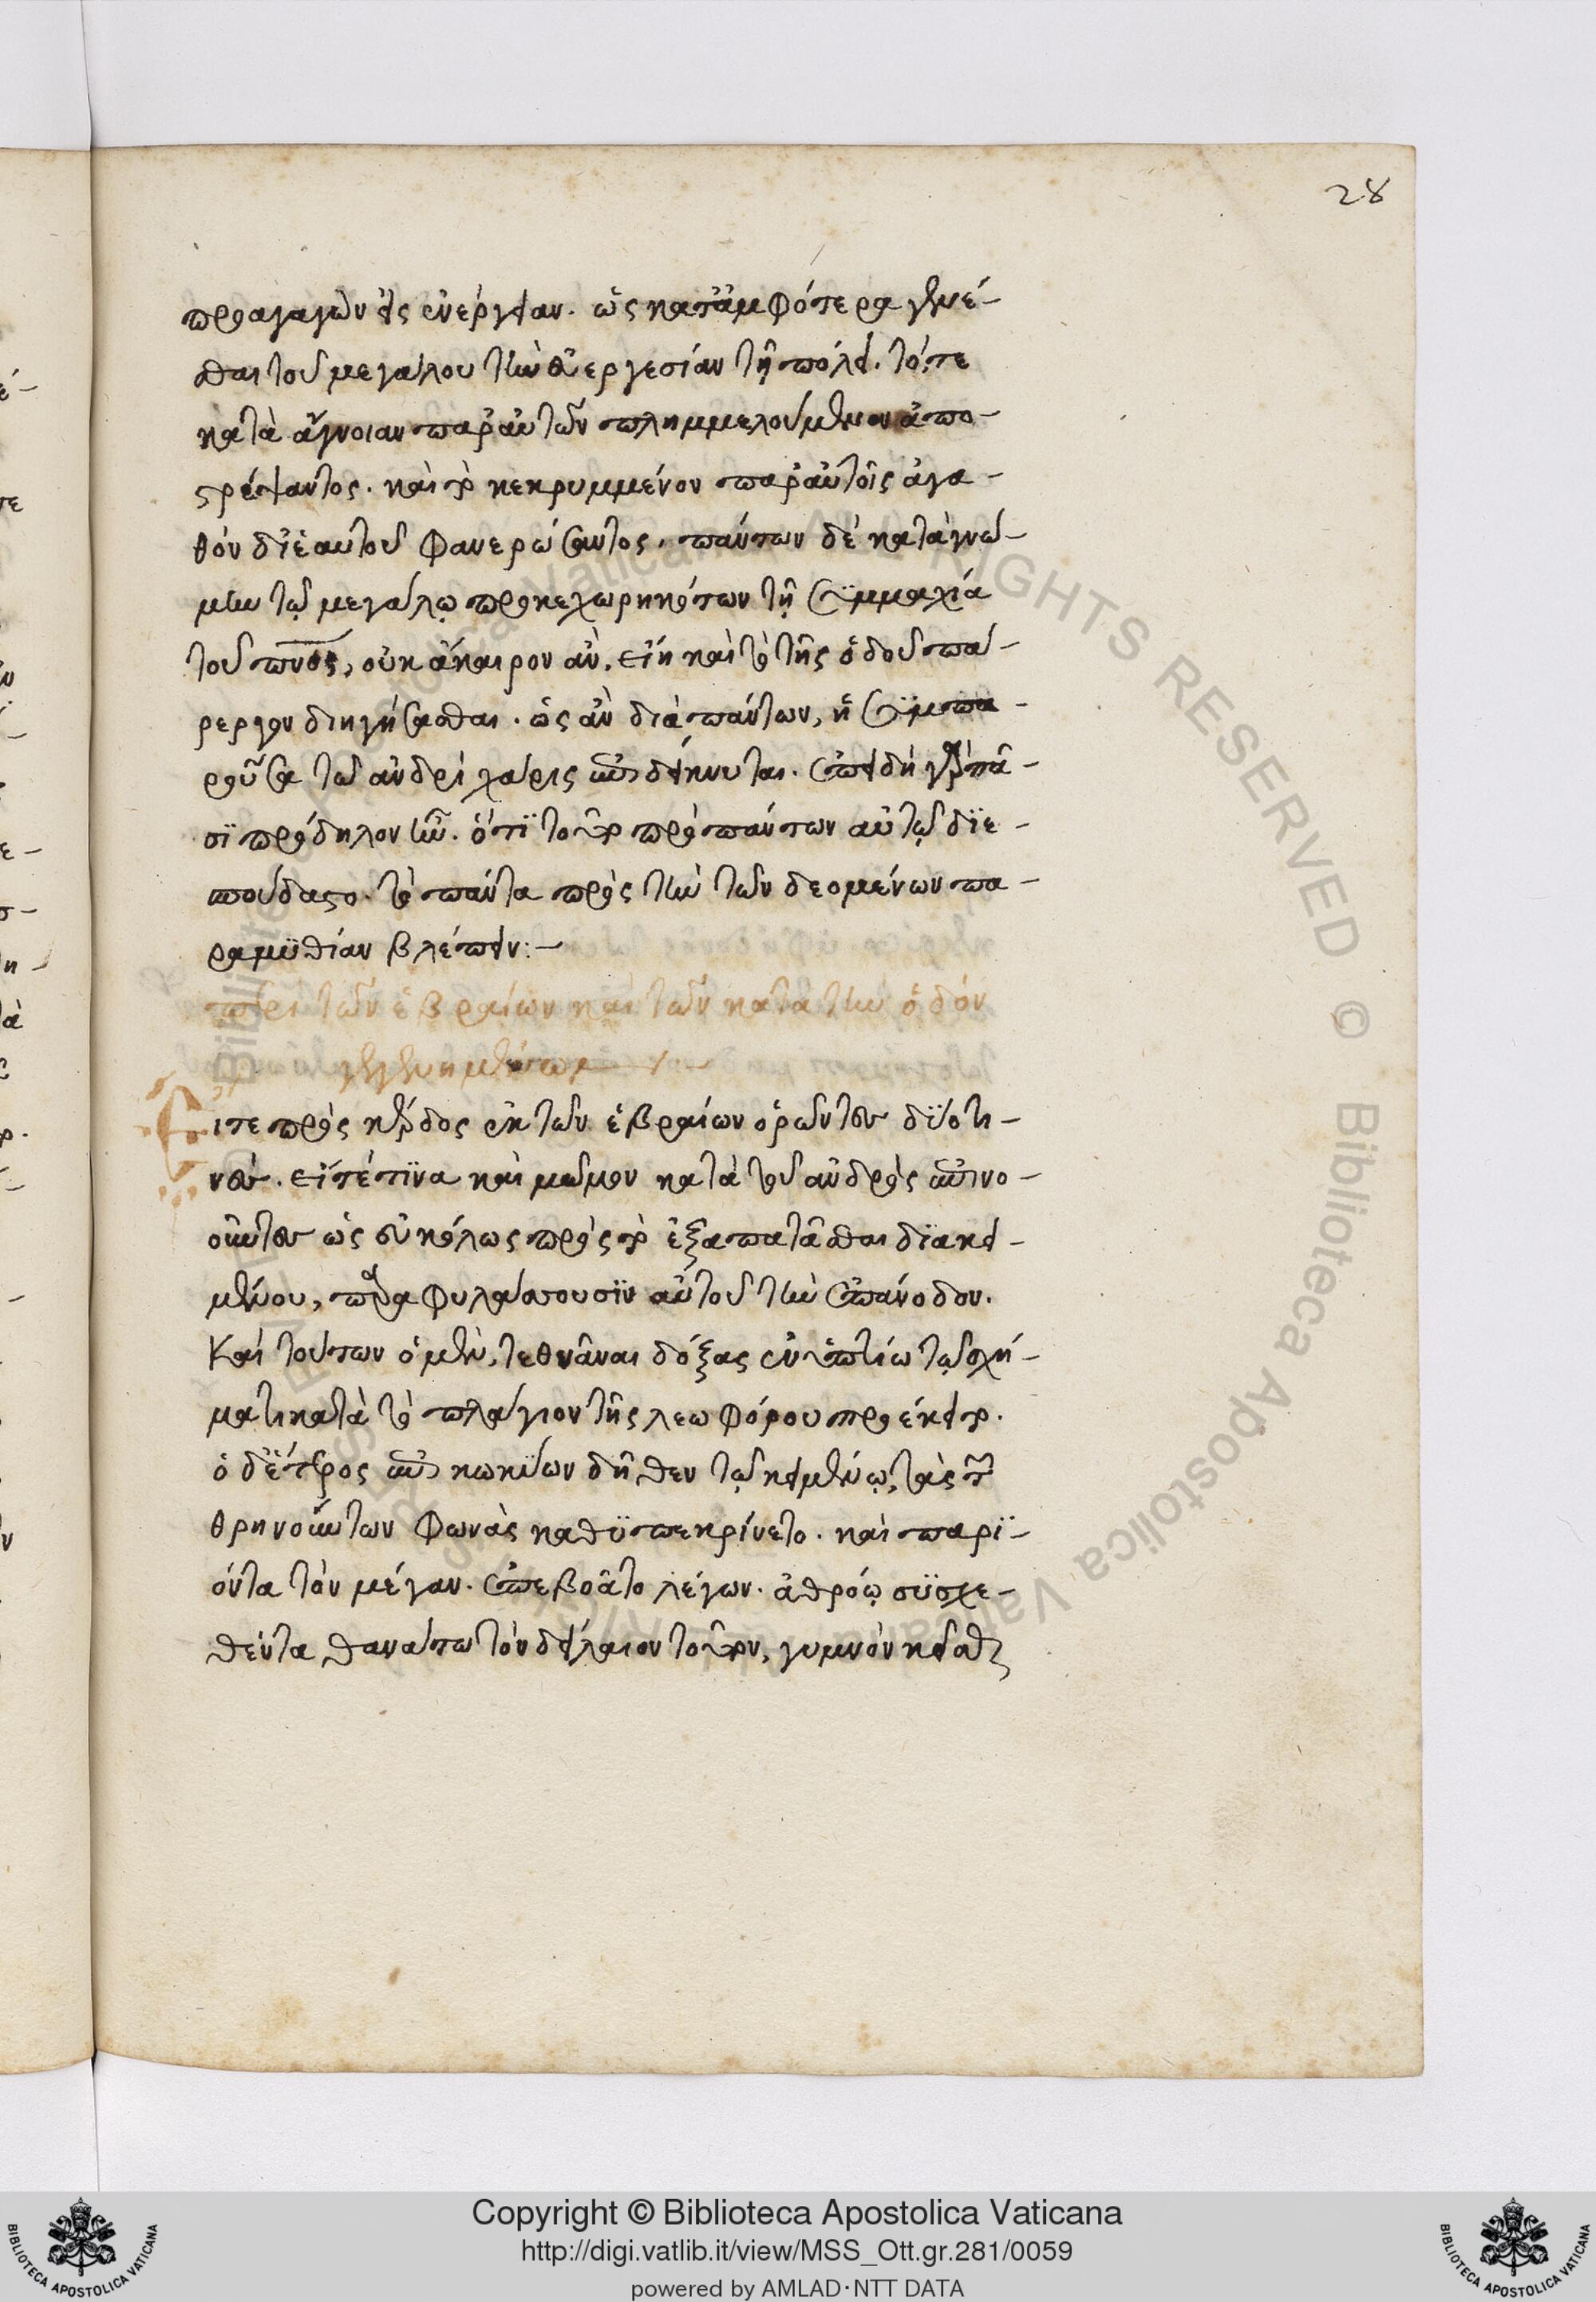 28
προαγαγὼν εἰς ἐνέργειαν. ὡς κατἀμφότερα γενέ-
σθαι τοῦ μεγάλου τὴν εὐεργεσίαν τῇ πόλει. τό, τε
κατὰ ἄγνοιαν παρ' αὐτῶν πλημμελούμενον ἀπο-
στρέψαντος. καὶ τὸ κεκρυμμένον παρ' αὐτοῖς ἀγα-
θὸν δι' ἑαυτοῦ φανερώσαντος. πάντων δὲ κατὰ γνώ-
μην τῷ μεγάλῳ προκεχωρηκότων τῇ συμμαχίᾳ
τοῦ πν̅ς̅, οὐκ ἄκαιρον ἂν, εἴη καὶ τὸ τῆς ὁδοῦ πά-
ρεργον διηγήσασθαι. ὡς ἂν διὰ πάντων, ἡ συμπα-
ροῦσα τῷ ἀνδρὶ χάρις ἐπιδείκνυται. ἐπειδὴ γὰρ πᾶ-
σϊ πρόδηλον ἦν. ὅτϊ τοῦτο πρὸ πάντων αὐτῷ δϊε-
σπούδαστο. τὸ πάντα πρὸς τὴν τῶν δεομένων πα-
ραμϋθίαν βλέπειν:-
περὶ τῶν ἑβραίων καὶ τῶν κατὰ τὴν ὁδόν
γεγενημένων
Εἴτε πρὸς κέρδος ἐκ τῶν ἑβραίων ὁρῶντές δϋό τι-
νες. εἴτέ τϊνα καὶ μῶμον κατὰ τοῦ ἀνδρὸς ἐπινο-
οῦντες ὡς εὐκόλως πρὸς τὸ ἐξαπατᾶσθαι δϊακει-
μένου, παραφυλάττουσϊν αὐτοῦ τὴν ἐπάνοδον.
Καὶ τούτων ὁ μὲν, τεθνᾶναι δόξας ἐν ὑπτίῳ τῷ σχή-
ματι κατὰ τὸ πλάγιον τῆς λεωφόρου προέκειτο.
ὁ δἕτερος ἐπικωκύων δῆθεν τῷ κειμένῳ, τὰς τῶν
θρηνούντων φωνὰς καθϋπεκρίνετο. καὶ παρϊ-
όντα τὸν μέγαν. ἐπεβοᾶτο λέγων. ἀθρόῳ συσχε-
θέντα θανάτω τὸν δείλαιον τοῦτον, γυμνὸν κεῖσθαι
Copyright © Biblioteca Apostolica Vaticana
http://digi.vatlib.it/view/MSS_Ott.gr.281/0059
powered by AMLAD·NTT DATA